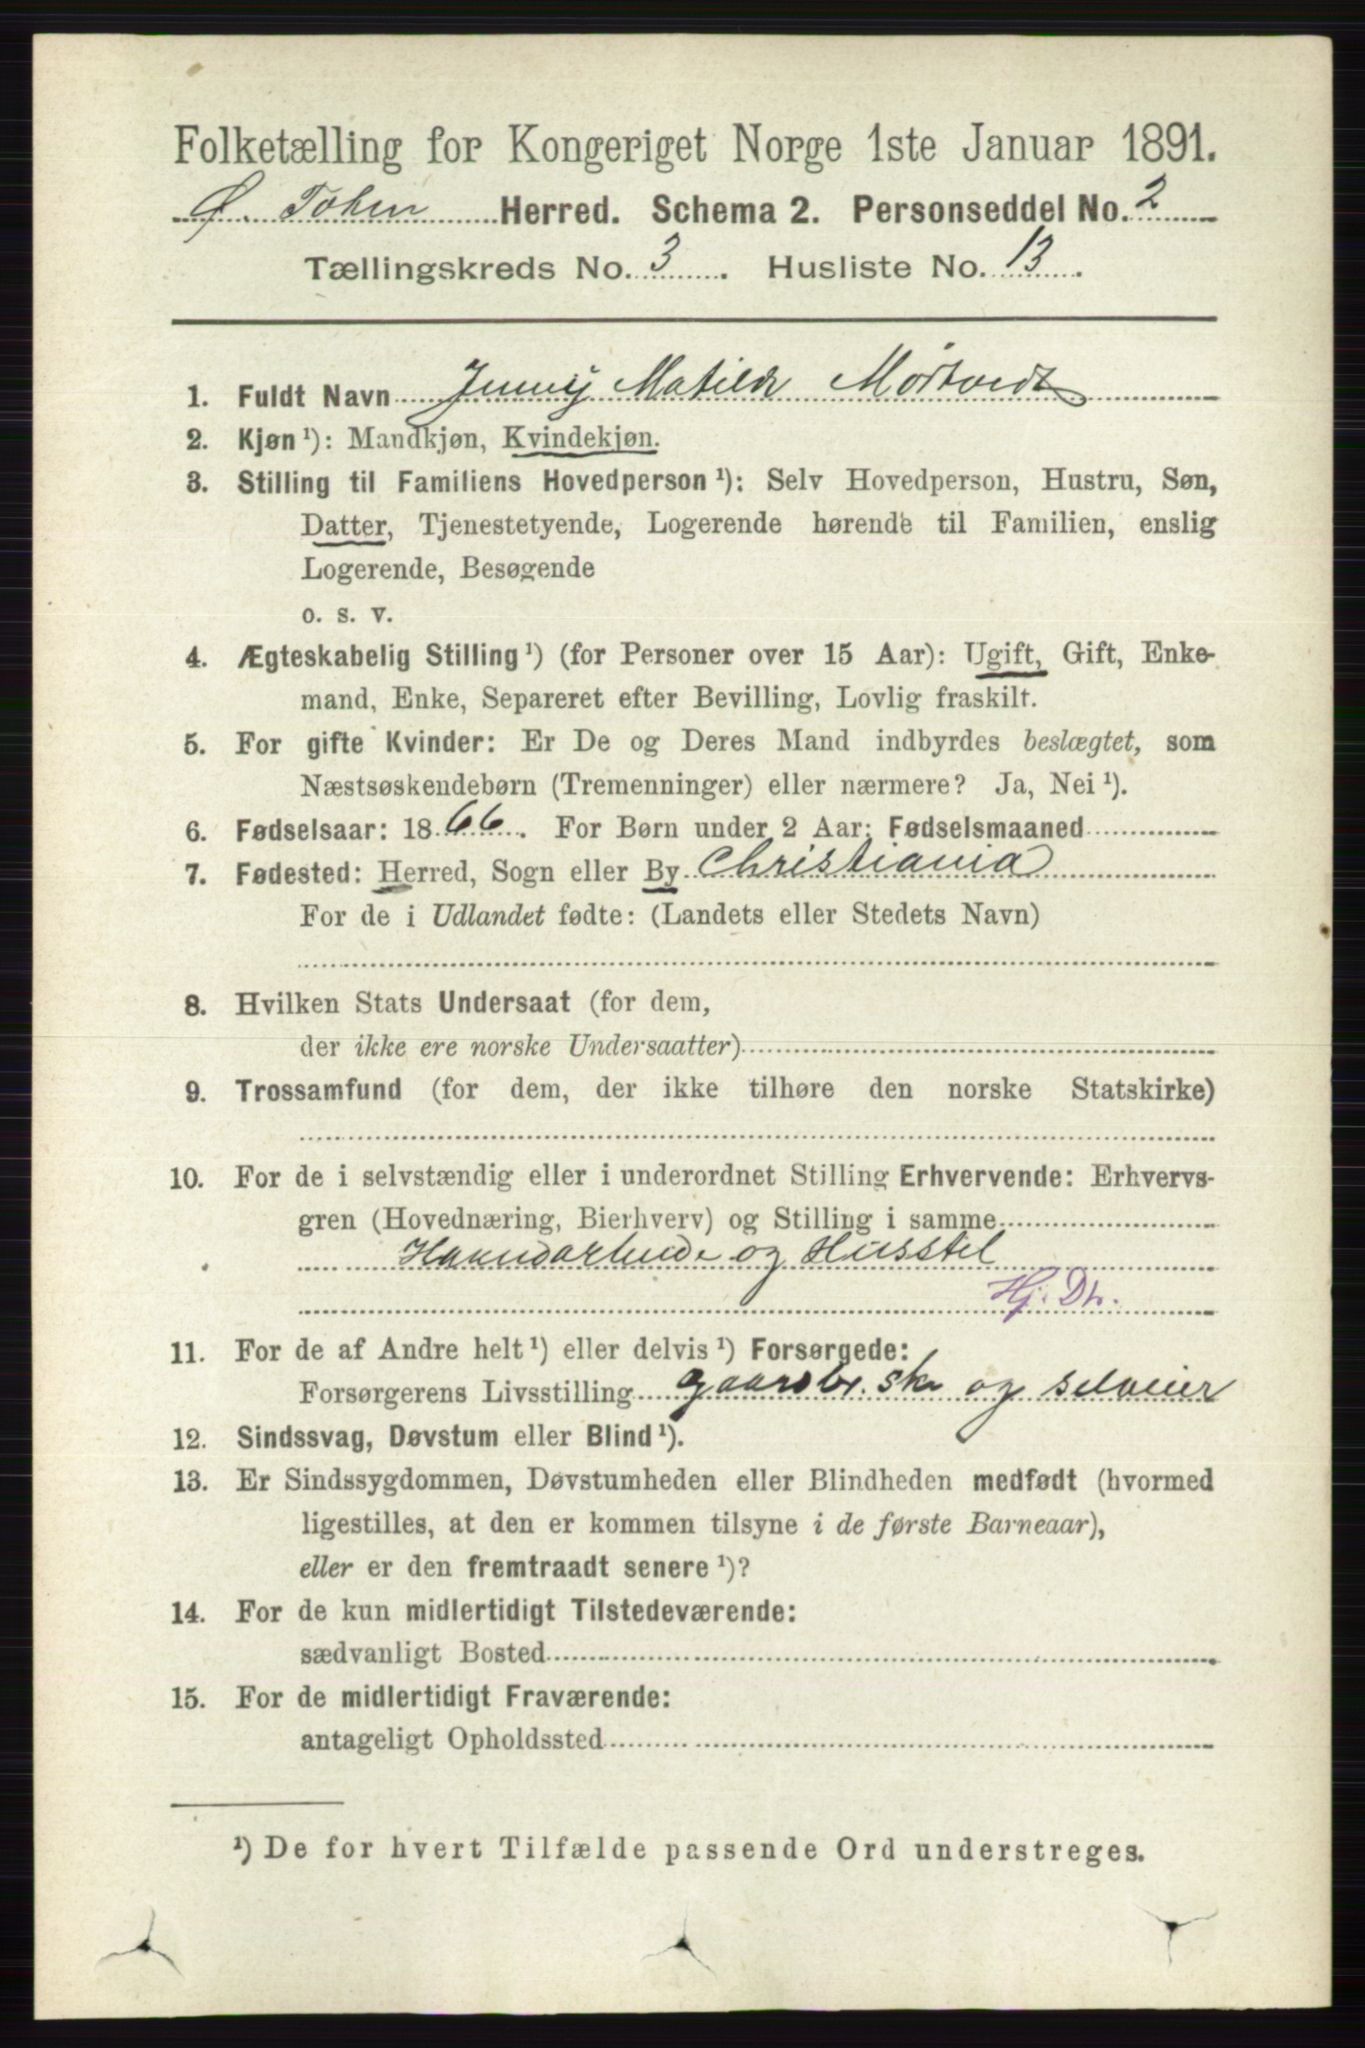 Folketælling for Kongeriget Norge 1ste Januar 1891.
Ø. Toten Herred. Schema 2. Personseddel No. 2
Tællingskreds No. 3. Husliste No. 13.
1. Fuldt Navn Jenny Matilde Mørtvedt
2. Kjøn ¹): Mandkjøn, Kvindekjøn.
3. Stilling til Familiens Hovedperson ¹): Selv Hovedperson, Hustru, Søn,
Datter, Tjenestetyende, Logerende hørende til Familien, enslig
Logerende, Besøgende
o. s. v.
4. Ægteskabelig Stilling ¹) (for Personer over 15 Aar): Ugift, Gift, Enke-
mand, Enke, Separeret efter Bevilling, Lovlig fraskilt.
5. For gifte Kvinder: Er De og Deres Mand indbyrdes beslægtet, som
Næstsøskendebørn (Tremenninger) eller nærmere? Ja, Nei ¹).
6. Fødselsaar: 1866. For Børn under 2 Aar: Fødselsmaaned
7. Fødested: Herred, Sogn eller By Christiania
For de i Udlandet fødte: (Landets eller Stedets Navn)
8. Hvilken Stats Undersaat (for dem,
der ikke ere norske Undersaatter)
9. Trossamfund (for dem, der ikke tilhøre den norske Statskirke)
10. For de i selvstændig eller i underordnet Stilling Erhvervende: Erhvervs-
gren (Hovednæring, Bierhverv) og Stilling i samme
Haandarbeide og Husstel
Hj. Dtr.
11. For de af Andre helt ¹) eller delvis ¹) Forsørgede:
Forsørgerens Livsstilling gaardbr. og selveier
12. Sindssvag, Døvstum eller Blind ¹).
13. Er Sindssygdommen, Døvstumheden eller Blindheden medfødt (hvormed
ligestilles, at den er kommen tilsyne i de første Barneaar),
eller er den fremtraadt senere ¹)?
14. For de kun midlertidigt Tilstedeværende:
sædvanligt Bosted
15. For de midlertidigt Fraværende:
antageligt Opholdssted
¹) De for hvert Tilfælde passende Ord understreges.